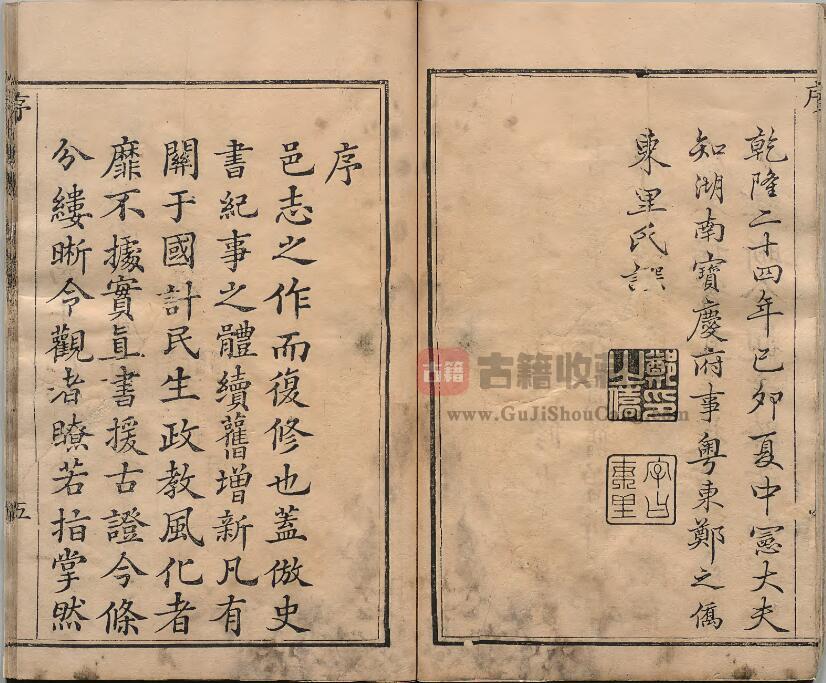 乾隆二十四年己卯夏中憲大夫
知湖南寶慶府事粵東鄭之僑
東里氏譔
鄭之僑印
字曰東里
序
邑志之作而復修也蓋倣史
書紀事之體續舊增新凡有
關于國計民生政教風化者
靡不據實直書援古證今條
分縷晰令觀者瞭若指掌然
序
五
古籍
古籍收藏
www.GuJiShouCang.com